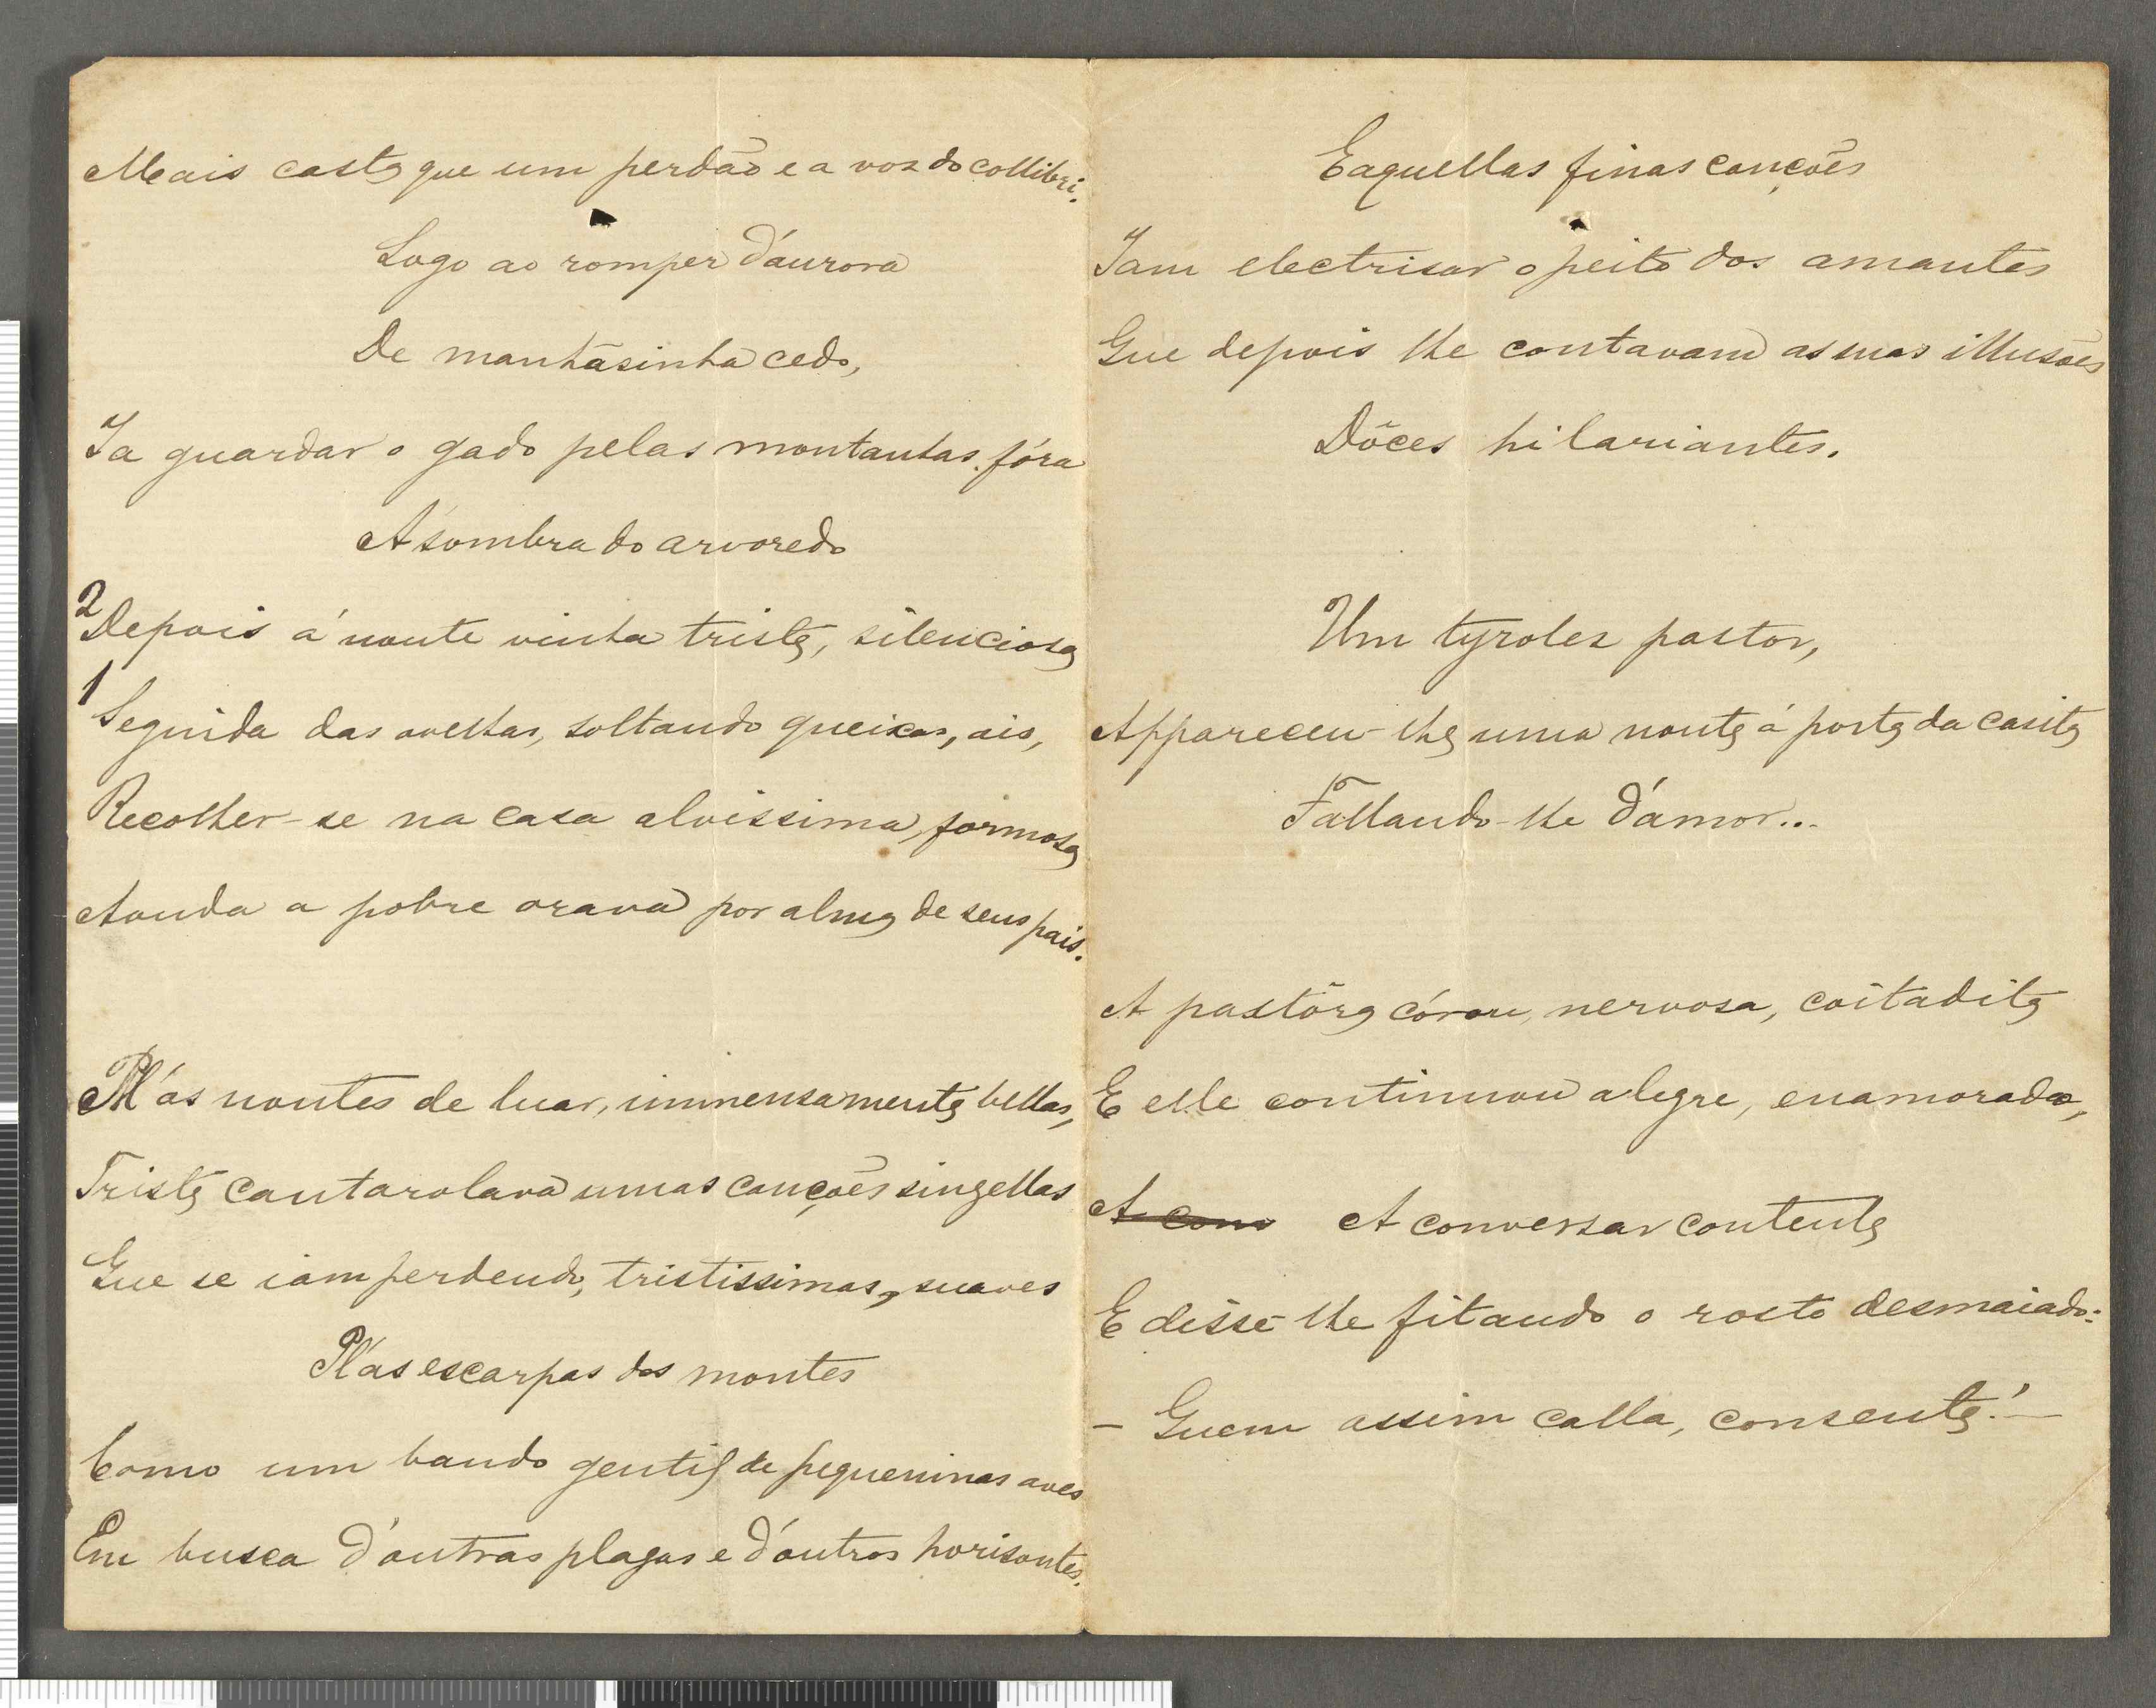 Mais casta que um perdão e a voz do collibri.
Logo ao romper d'aurora
De manhãsinha cedo,
Ia guardar o gado pelas montanhas fóra
A' sombra do arvoredo
2 Depois á noute vinha triste, silenciosa
1 Seguida das ovelhas, soltando queixas, ais,
Recolher-se na casa alvissima, formosa
Aonda a pobre orava por alma de seus pais.
N'as noutes de luar, immensamente bellas,
Triste cantarolava umas canções singellas
Que se iam perdendo, tristissimas, suaves
N'as escarpas dos montes
Como um bando gentil de pequeninas aves
Em busca d'outras plagas e d'outros horisontes.
E aquellas finas canções
Iam electrisar o peito dos amantes
Que depois lhe contavam as suas illusões
Dôces hilariantes.
Um tyrolez pastor,
Appareceu-lhe uma noute á porta da casita
Fallando-lhe d'amor...
A pastôra córou, nervosa, coitadita
E elle continuou alegre, enamorado,
A com A conversar contente
E disse-lhe fitando o rosto desmaiado:
– Quem assim calla, consente! –